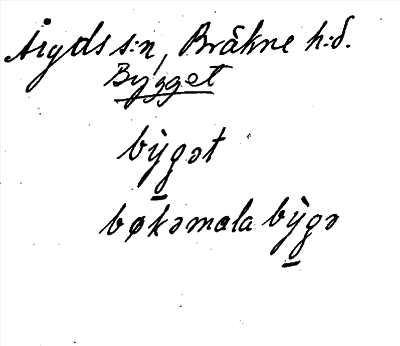 Åryds s:n, Bräkne h:d.
Bygget
bỳgət
bøkəmåla bỳgə